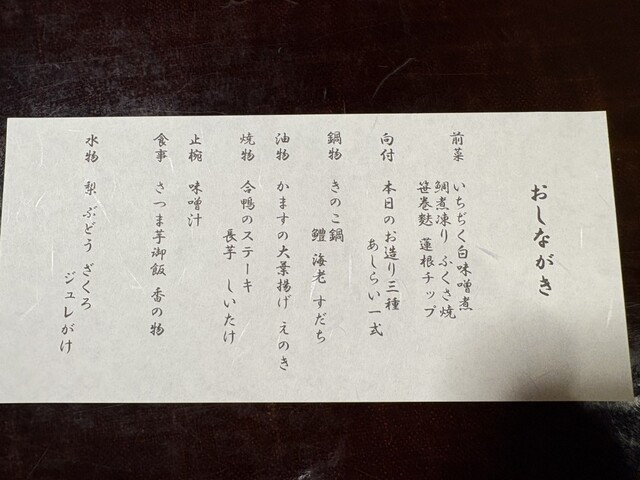 おしながき
前菜 いちぢく白味噌煮
鯛煮凍り ふくさ焼
笹巻麩 蓮根チップ
向付 本日のお造り三種
あしらい一式
鍋物 きのこ鍋
鱧 海老 すだち
油物 かますの大葉揚げ えのき
焼物 合鴨のステーキ
長芋 しいたけ
止椀 味噌汁
食事 さつま芋御飯 香の物
水物 梨 ぶどう ざくろ
ジュレがけ